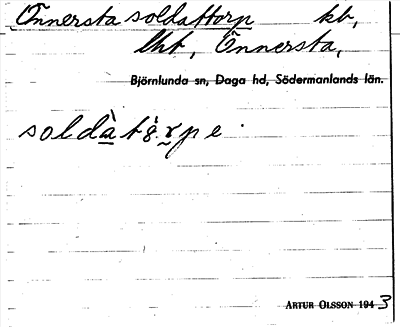 Önnersta soldattorp kb,
lht, Önnersta,
Björnlunda sn, Daga hd, Södermanlands län.
soldàtò̤rpe.
ARTUR OLSSON 1943